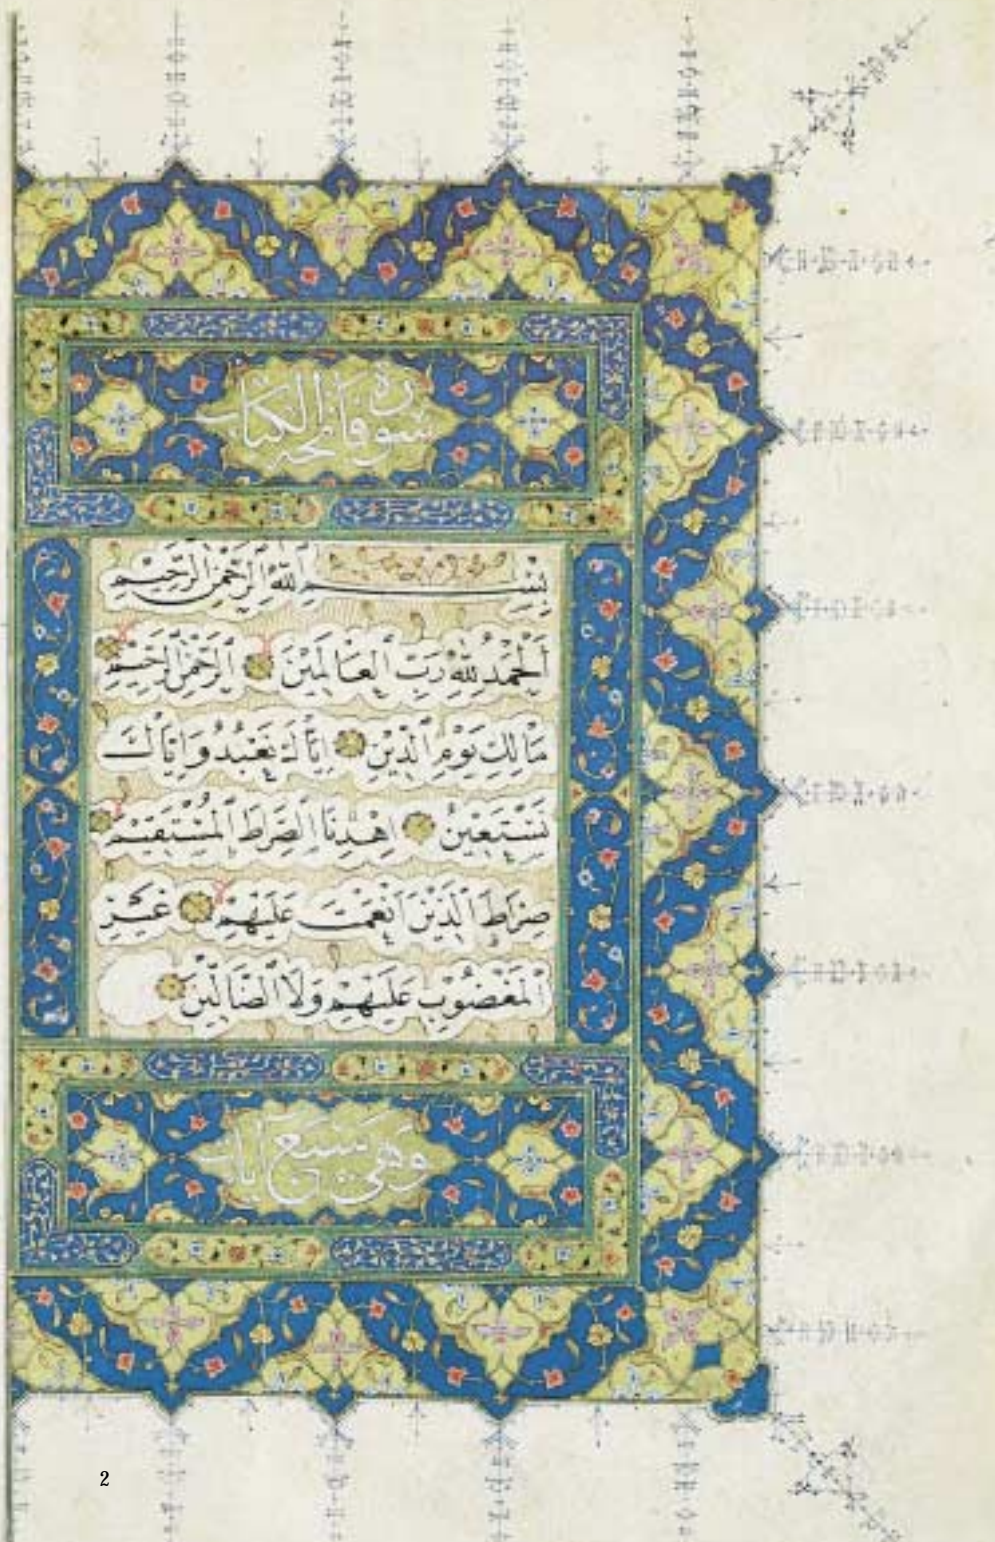 سورة فاتحة الكتاب
بِسْمِ اللّٰهِ الرَّحْمٰنِ الرَّحِيمِ
اَلْحَمْدُ لِلّٰهِ رَبِّ الْعَالَمِينَ ۝ اَلرَّحْمٰنِ الرَّحِيمِ ۝
مَالِكِ يَوْمِ الدِّينِ ۝ اِيَّاكَ نَعْبُدُ وَاِيَّاكَ
نَسْتَعِينُ ۝ اِهْدِنَا الصِّرَاطَ الْمُسْتَقِيمَ ۝
صِرَاطَ الَّذِينَ اَنْعَمْتَ عَلَيْهِمْ ۝ غَيْرِ
الْمَغْضُوبِ عَلَيْهِمْ وَلَا الضَّالِّينَ ۝
وهي سبع آيات
2